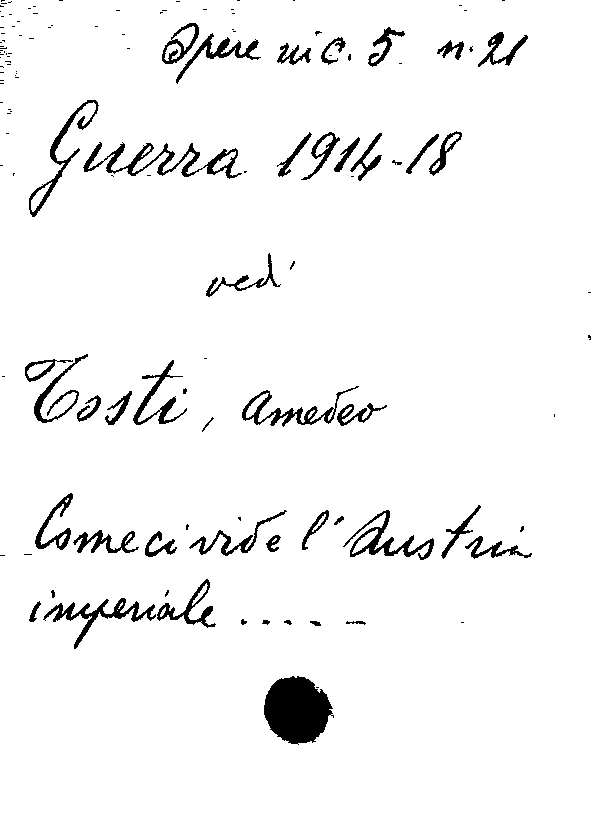 Opere in c. 5 n. 21
Guerra 1914-18
vedi
Tosti, Amedeo
Come ci vide l'Austria
imperiale .....